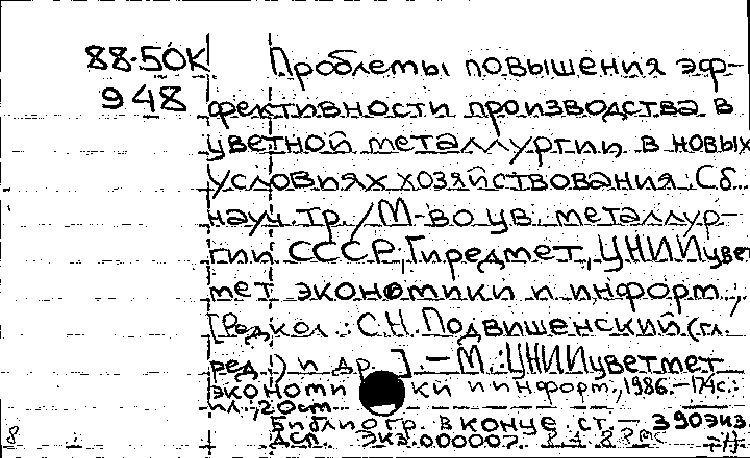 88-50К Проблемы повышения эф-
948 фективности производства в
цветной металлургии в новых
условиях хозяйствования. Сб.
науч. тр. / М-во цв. металлур-
гии СССР, Гиредмет, ЦНИИцвет
мет экономики и информ.;
[Редкол.: С.Н. Подвишенский (гл.
ред.) и др.]. - М.: ЦНИИцветмет
экономики и информ., 1986. - 174с.:
ил.; 20см
Библиогр. в конце ст. - 390экз.
ДСП. Экз. 000007.
8